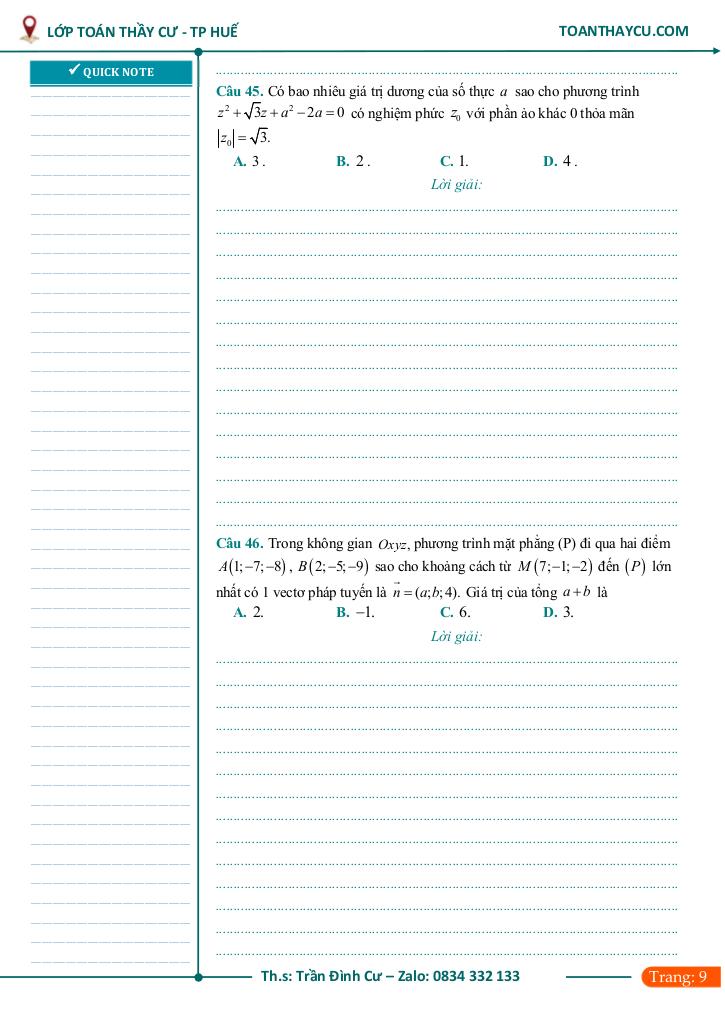 LỚP TOÁN THẦY CƯ - TP HUẾ
TOANTHAYCU.COM
✓ QUICK NOTE
Câu 45. Có bao nhiêu giá trị dương của số thực a sao cho phương trình
z² + √3z + a² − 2a = 0 có nghiệm phức z₀ với phần ảo khác 0 thỏa mãn
|z₀| = √3.
A. 3 . B. 2 . C. 1. D. 4 .
Lời giải:
Câu 46. Trong không gian Oxyz, phương trình mặt phẳng (P) đi qua hai điểm
A(1;−7;−8) , B(2;−5;−9) sao cho khoảng cách từ M(7;−1;−2) đến (P) lớn
nhất có 1 vectơ pháp tuyến là n⃗ = (a;b;4). Giá trị của tổng a+b là
A. 2. B. −1. C. 6. D. 3.
Lời giải:
Th.s: Trần Đình Cư – Zalo: 0834 332 133
Trang: 9